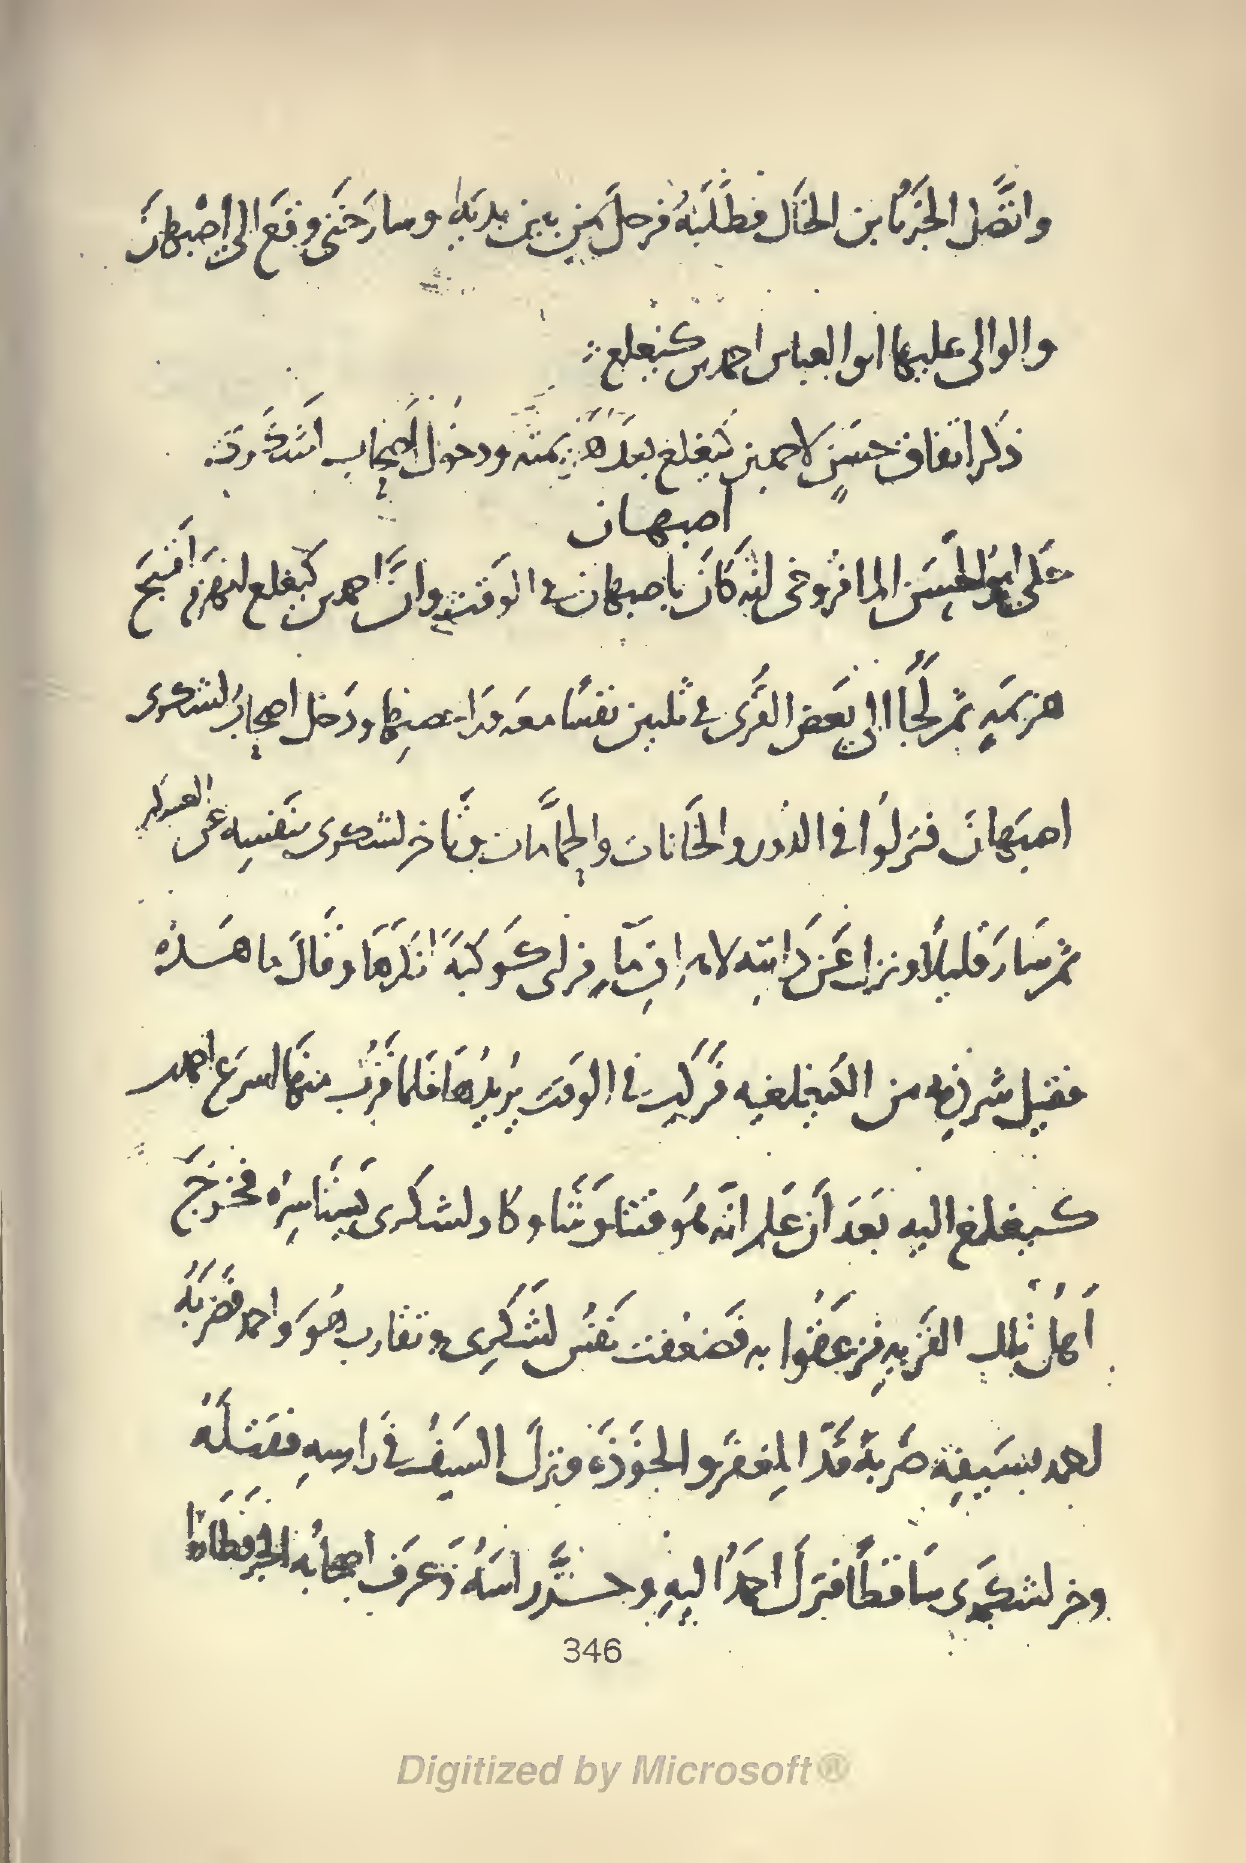 واتصل الخبر بابن الخال فطلبه فرحل من بين يديه وسار حتى وقع الى اصبهان
والوالى عليها ابو العباس احمد بن كيغلغ
ذكر اتفاق حسن لاحمد بن كيغلغ بعد هزيمته ودخول اصحاب لشكرى
اصبهان
حكى ابو الحسن المافروخى انه كان باصبهان فى الوقت وان احمد بن كيغلغ انهزم اقبح
هزيمة ثم لجا الى بعض القرى فى ثلثين نفسا معه ودخل اصحاب لشكرى
اصبهان فنزلوا فى الدور والخانات والحمامات وتاخر لشكرى بنفسه عن العسكر
ثم سار قليلا ونزل عن دابته فراى كوكبة انكرها وقال ما هذه
فقيل شرذمة من الكيغلغية فركب فى الوقت يريدها فلما قرب منها اسرع احمد
كيغلغ اليه بعد ان علم انه هو فتناوشا وكاد لشكرى يستاسره فخرج
اهل تلك القرية فزعقوا به فضعفت نفس لشكرى وتقارب هو واحمد فضربه
احمد بسيفه ضربة قد المغفر والخوذة ونزل السيف فى راسه فقتله
وخر لشكرى ساقطا فنزل احمد اليه وحز راسه وعرف اصحابه الخبر فطاروا
346
Digitized by Microsoft®